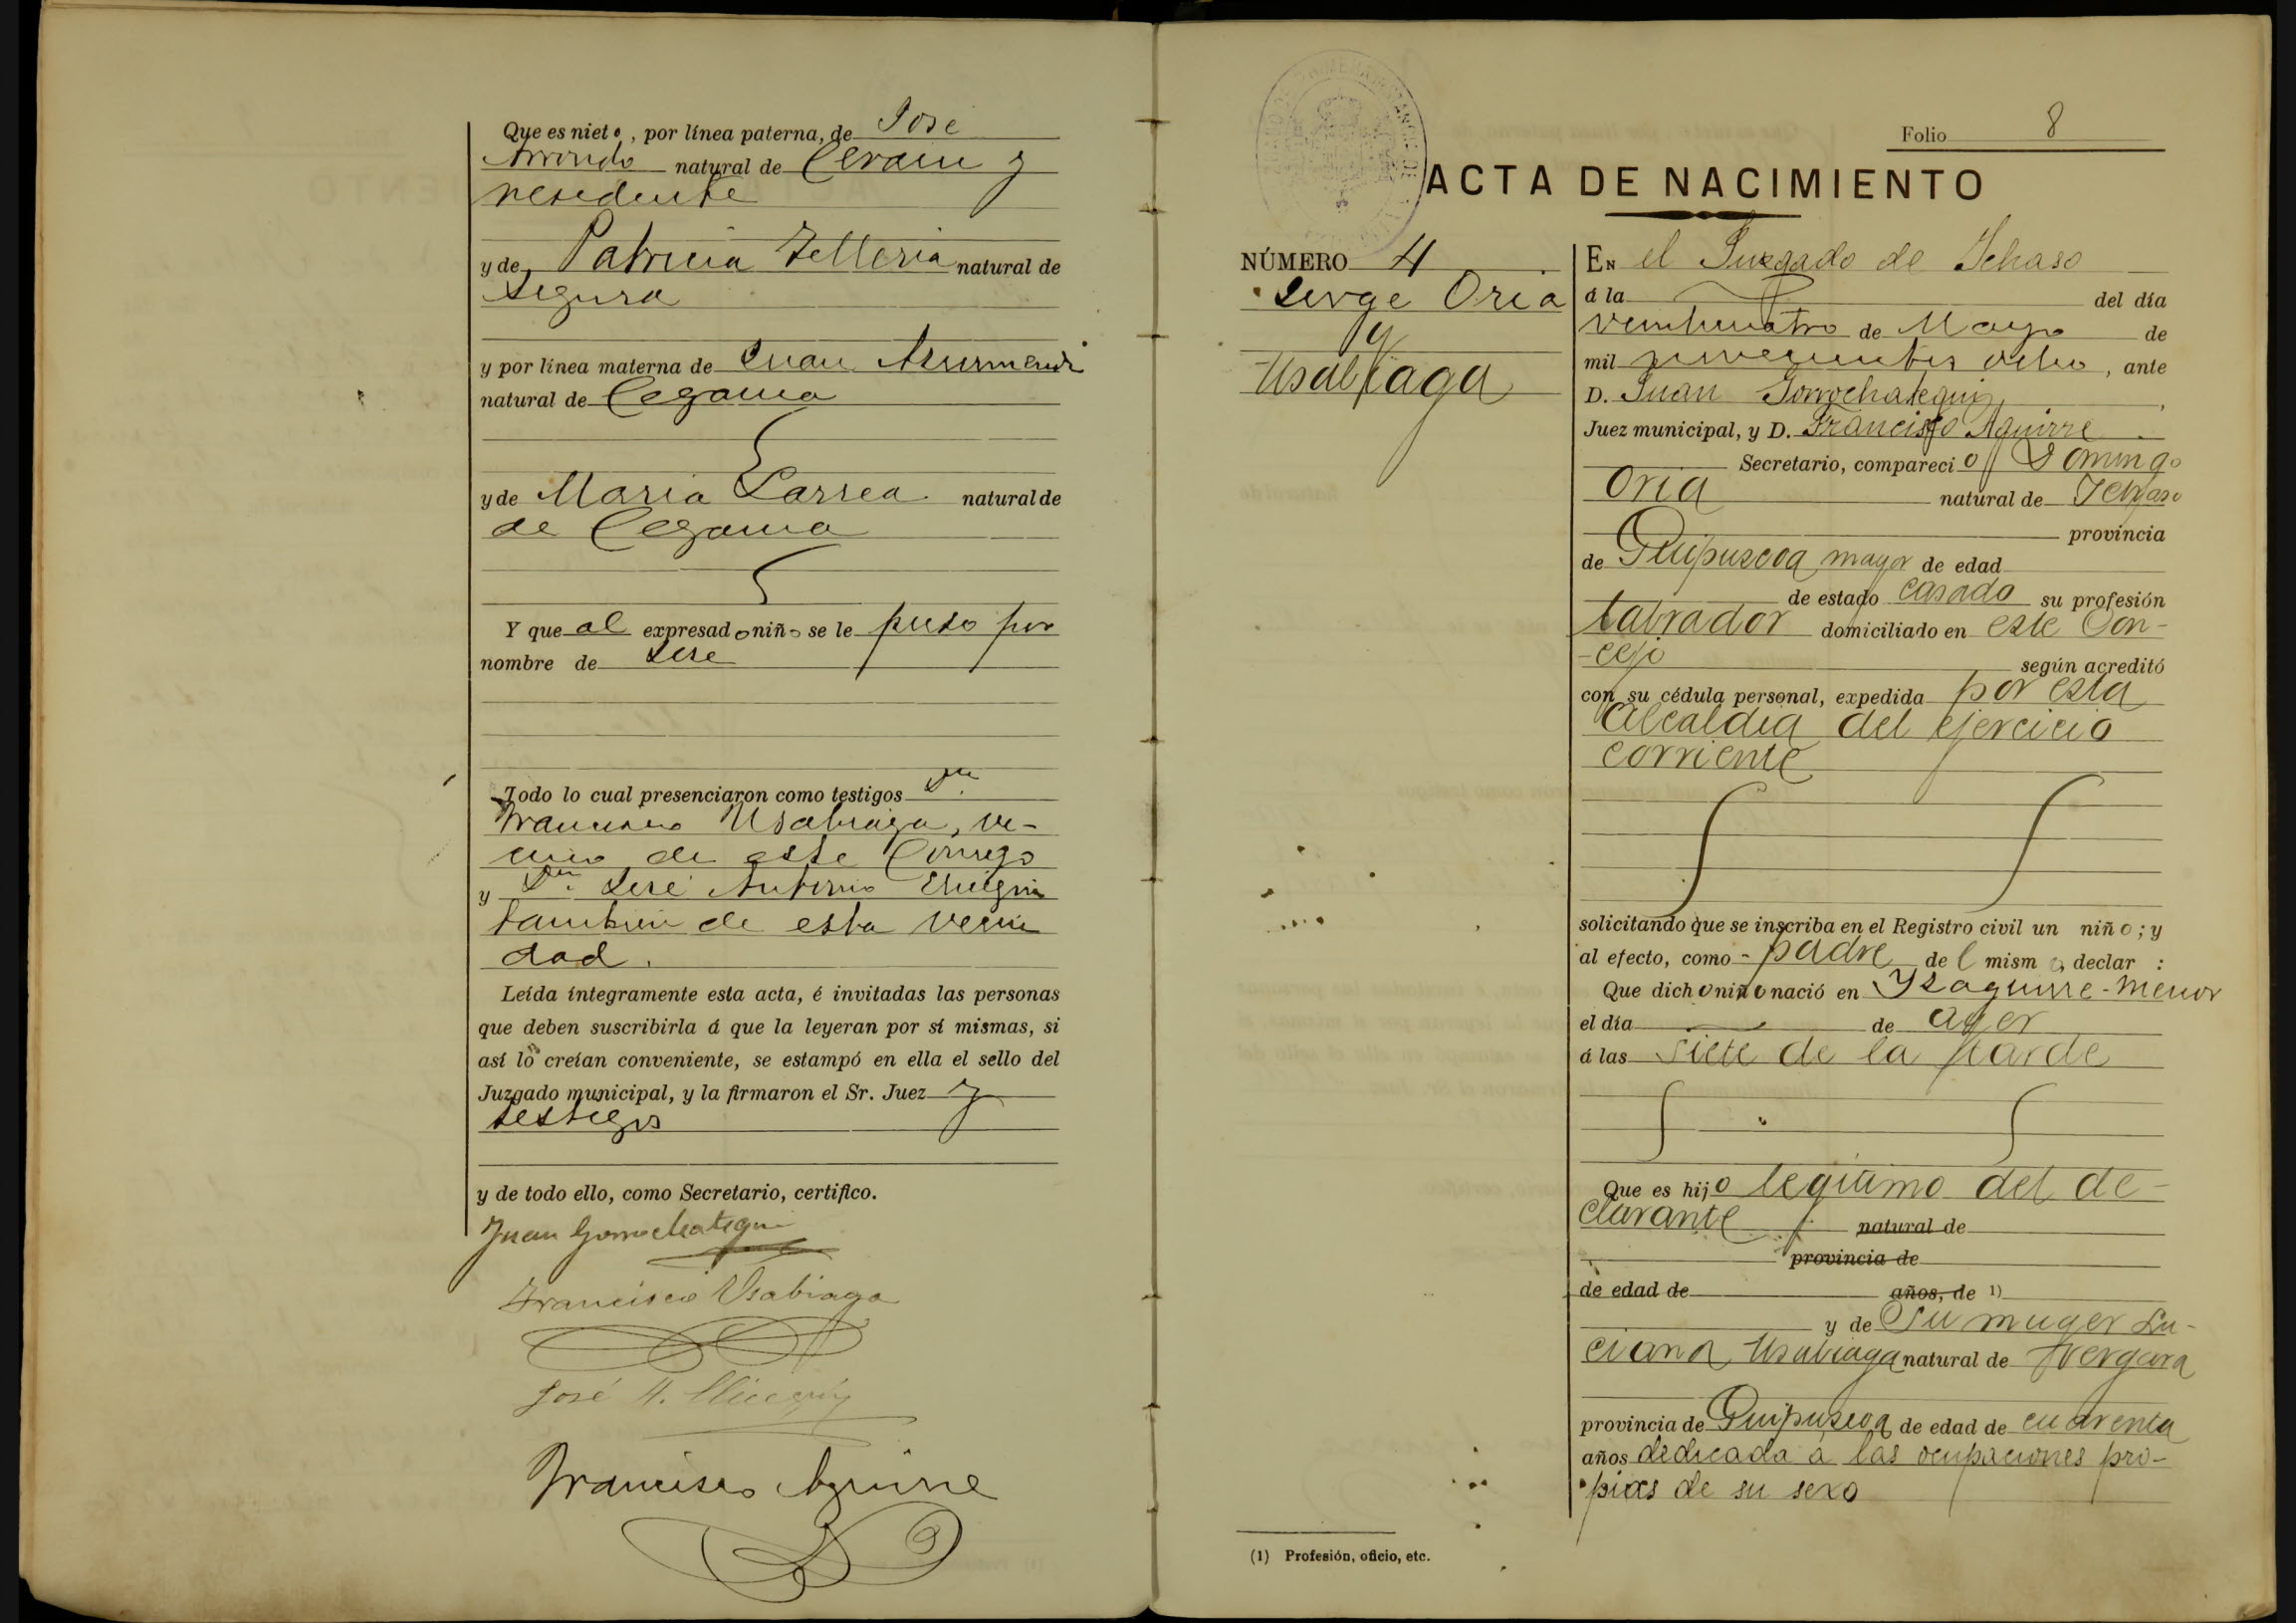 Que es nieto, por línea paterna, de Jose
Arrondo natural de Cerain y
residente
y de Patricia Telleria natural de
Segura
y por línea materna de Juan Asurmendi
natural de Cegama
y de Maria Larrea natural de
de Cegama
Y que al expresado niño se le puso por
nombre de José
Todo lo cual presenciaron como testigos Dn.
Francisco Usabiaga, ve-
cino de este Concejo
y Dn. José Antonio
tambien de esta vecin
dad.
Leída íntegramente esta acta, é invitadas las personas
que deben suscribirla á que la leyeran por sí mismas, si
así lo creían conveniente, se estampó en ella el sello del
Juzgado municipal, y la firmaron el Sr. Juez y
testigos
y de todo ello, como Secretario, certifico.
Juan Gorrochategui
Francisco Usabiaga
José A.
Francisco Aguirre
Folio 8
ACTA DE NACIMIENTO
NÚMERO 4
Jorge Oria
y
Usabiaga
EN el Juzgado de Ichaso
á la del día
veinticuatro de Mayo de
mil novecientos ocho, ante
D. Juan Gorrochategui,
Juez municipal, y D. Francisco Aguirre
Secretario, compareció Domingo
Oria natural de Ichaso
provincia
de Guipuzcoa mayor de edad
de estado casado su profesión
labrador domiciliado en este Con-
-cejo según acreditó
con su cédula personal, expedida por esta
Alcaldia del ejercicio
corriente
solicitando que se inscriba en el Registro civil un niño; y
al efecto, como - padre del mismo, declar :
Que dicho niño nació en Ysaguirre-Menor
el día de ayer
á las siete de la tarde
Que es hijo legitimo del de-
clarante natural de
provincia de
de edad de años, de 1)
y de su muger Lu-
ciana Usabiaga natural de Vergara
provincia de Guipuzcoa de edad de cuarenta
años dedicada á las ocupaciones pro-
pias de su sexo
(1) Profesión, oficio, etc.